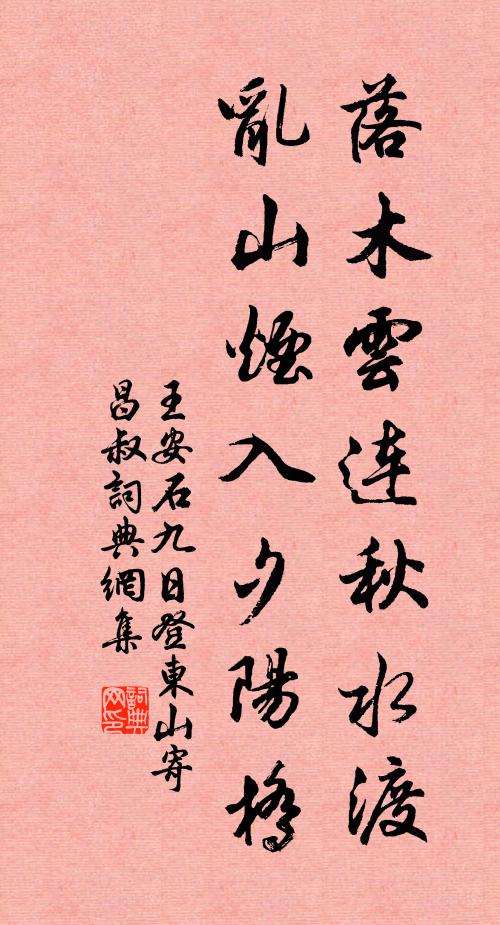 落木雲連秋水渡
亂山煙入夕陽橋
王安石九日登東山寄
昌叔詞典網集
詞典网印